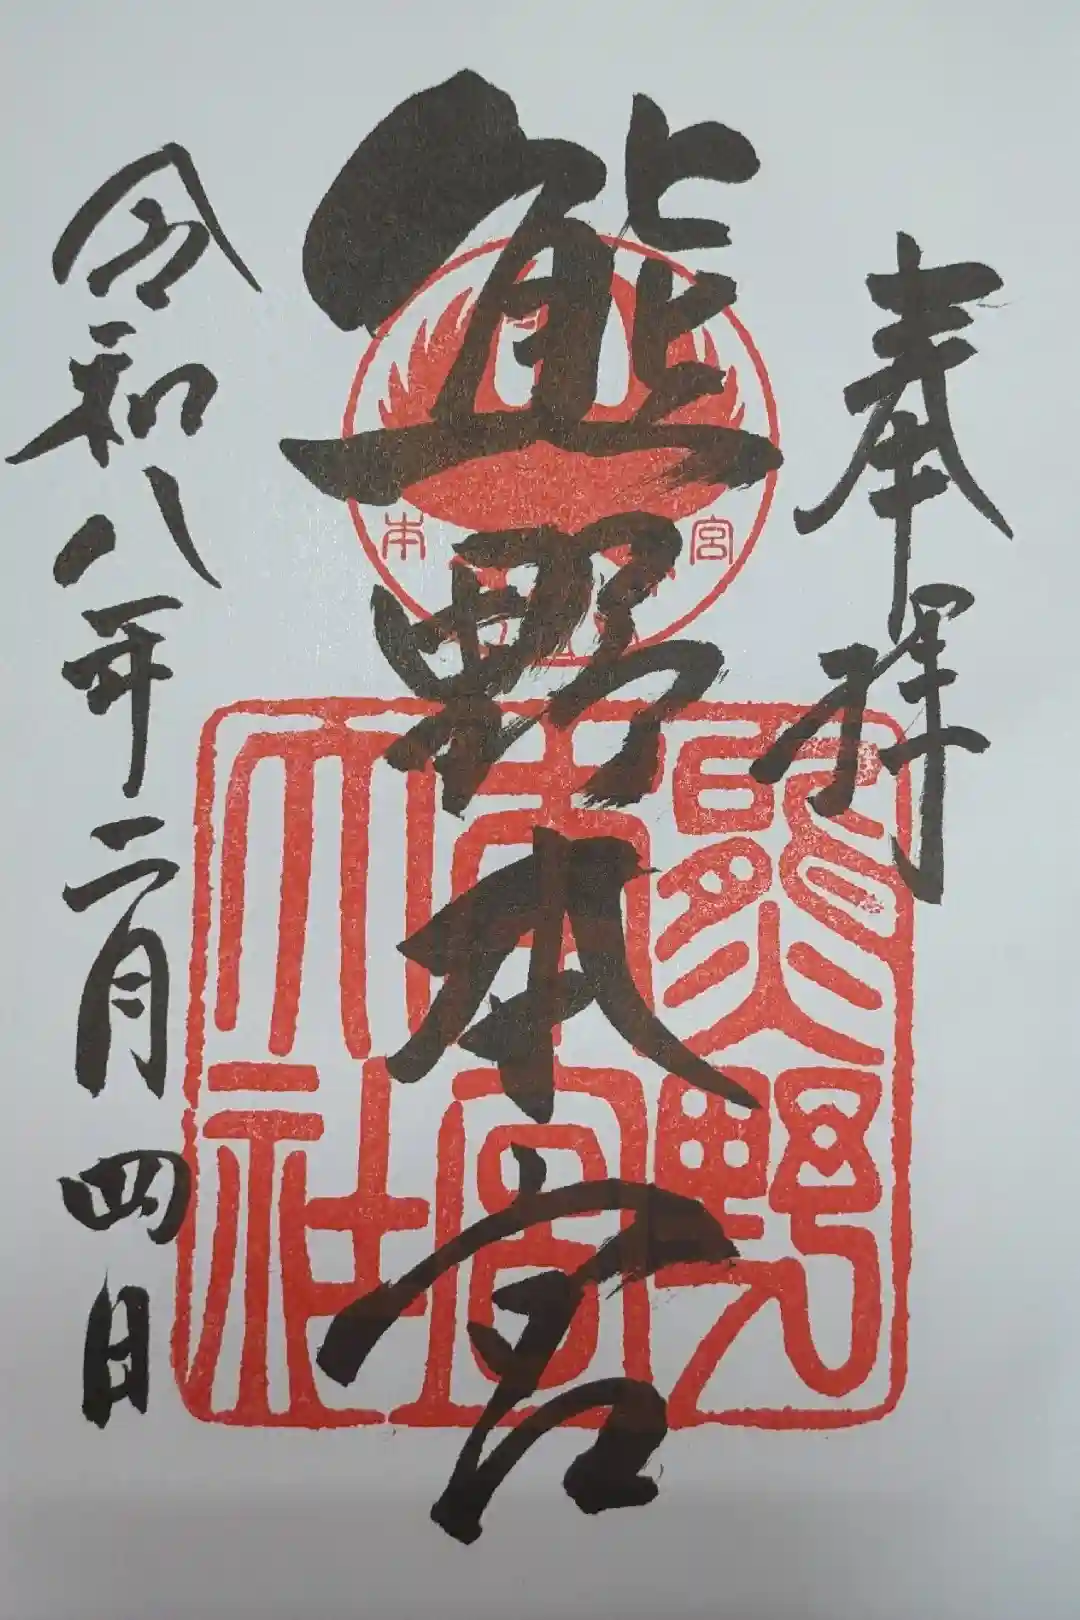 奉拝
熊野本宮
本 宮
熊野
本宮
大社
令和八年二月四日